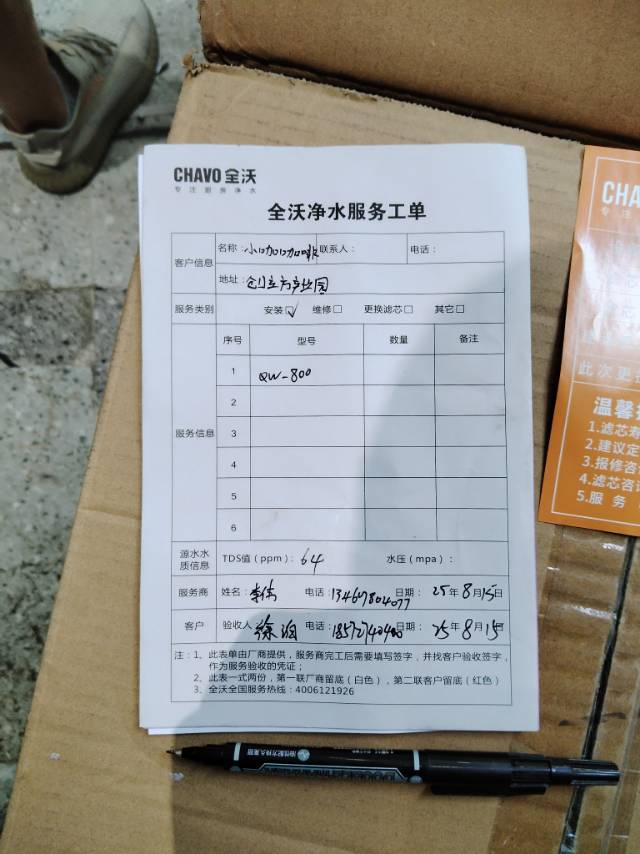 CHAVO 全沃
专注厨房净水
全沃净水服务工单
客户信息 名称：小咖咖啡 联系人： 电话：
地址：创立方产业园
服务类别 安装☑ 维修□ 更换滤芯□ 其它□
服务信息 序号 型号 数量 备注
1 QW-800
2
3
4
5
6
源水水质信息 TDS值（ppm）：64 水压（mpa）：
服务商 姓名：李伟 电话：13467804077 日期：25年8月15日
客户 验收人 徐 电话：18572740400 日期：25年8月15日
注：1、此表单由厂商提供，服务商完工后需要填写签字，并找客户验收签字，
作为服务验收的凭证；
2、此表一式两份，第一联厂商留底（白色），第二联客户留底（红色）
3、全沃全国服务热线：4006121926
CHAVO
专注
此次更
温馨
1.滤芯寿
2.建议定
3.报修咨
4.滤芯咨
5.服务